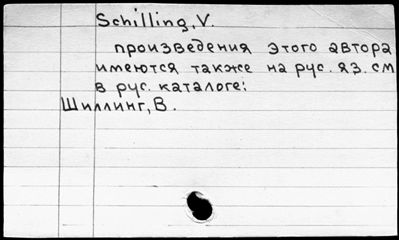 Schilling, V.
произведения этого автора
имеются также на рус. яз. см
в рус. каталоге:
Шиллинг, В.